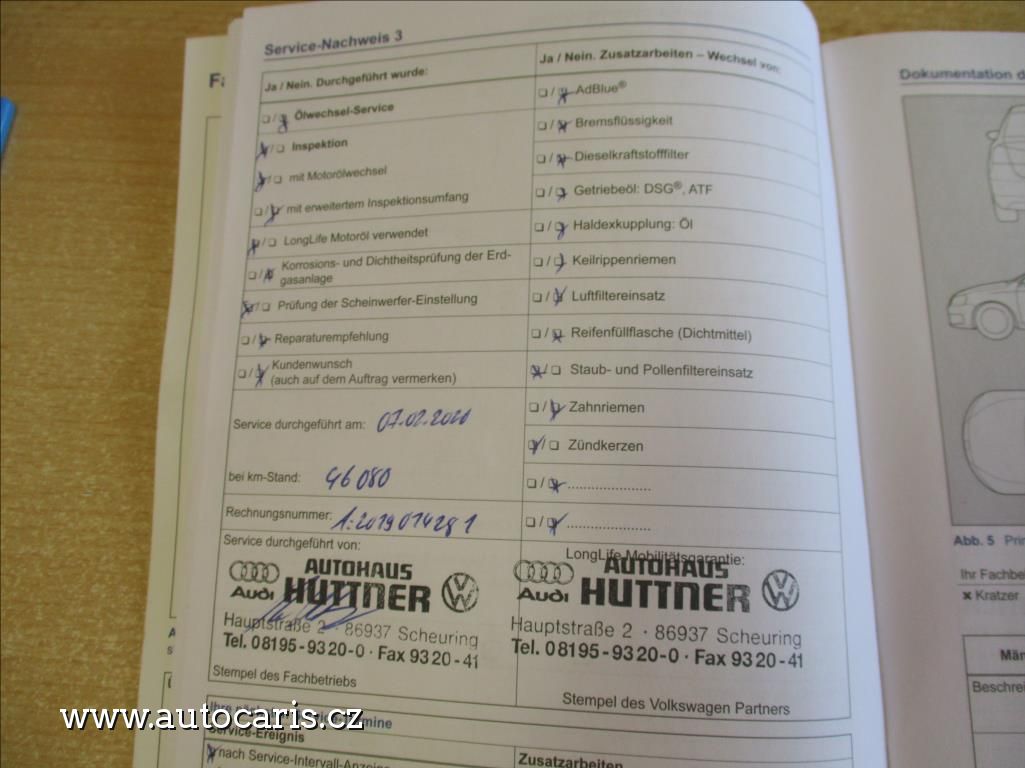 Service-Nachweis 3
Ja / Nein. Durchgeführt wurde:
❑/❑ Ölwechsel-Service
❑/❑ Inspektion
❑/❑ mit Motorölwechsel
❑/❑ mit erweitertem Inspektionsumfang
❑/❑ LongLife Motoröl verwendet
❑/❑ Korrosions- und Dichtheitsprüfung der Erd-
gasanlage
❑/❑ Prüfung der Scheinwerfer-Einstellung
❑/❑ Reparaturempfehlung
❑/❑ Kundenwunsch
(auch auf dem Auftrag vermerken)
Service durchgeführt am: 07.02.2020
bei km-Stand: 46080
Rechnungsnummer: 1:2019014281
Service durchgeführt von:
AUTOHAUS
Audi HUTTNER
Hauptstraße 2 · 86937 Scheuring
Tel. 08195-9320-0 · Fax 9320-41
Stempel des Fachbetriebs
Ja / Nein. Zusatzarbeiten – Wechsel von:
❑/❑ AdBlue®
❑/❑ Bremsflüssigkeit
❑/❑ Dieselkraftstofffilter
❑/❑ Getriebeöl: DSG®, ATF
❑/❑ Haldexkupplung: Öl
❑/❑ Keilrippenriemen
❑/❑ Luftfiltereinsatz
❑/❑ Reifenfüllflasche (Dichtmittel)
❑/❑ Staub- und Pollenfiltereinsatz
❑/❑ Zahnriemen
❑/❑ Zündkerzen
❑/❑ .....................
❑/❑ .....................
LongLife Mobilitätsgarantie:
AUTOHAUS
Audi HUTTNER
Hauptstraße 2 · 86937 Scheuring
Tel. 08195-9320-0 · Fax 9320-41
Stempel des Volkswagen Partners
Service-Ereignis
nach Service-Intervall-Anzeige
Zusatzarbeiten
Dokumentation d
Abb. 5 Prin
Ihr Fachbe
× Kratzer
Män
Beschrei
www.autocaris.cz